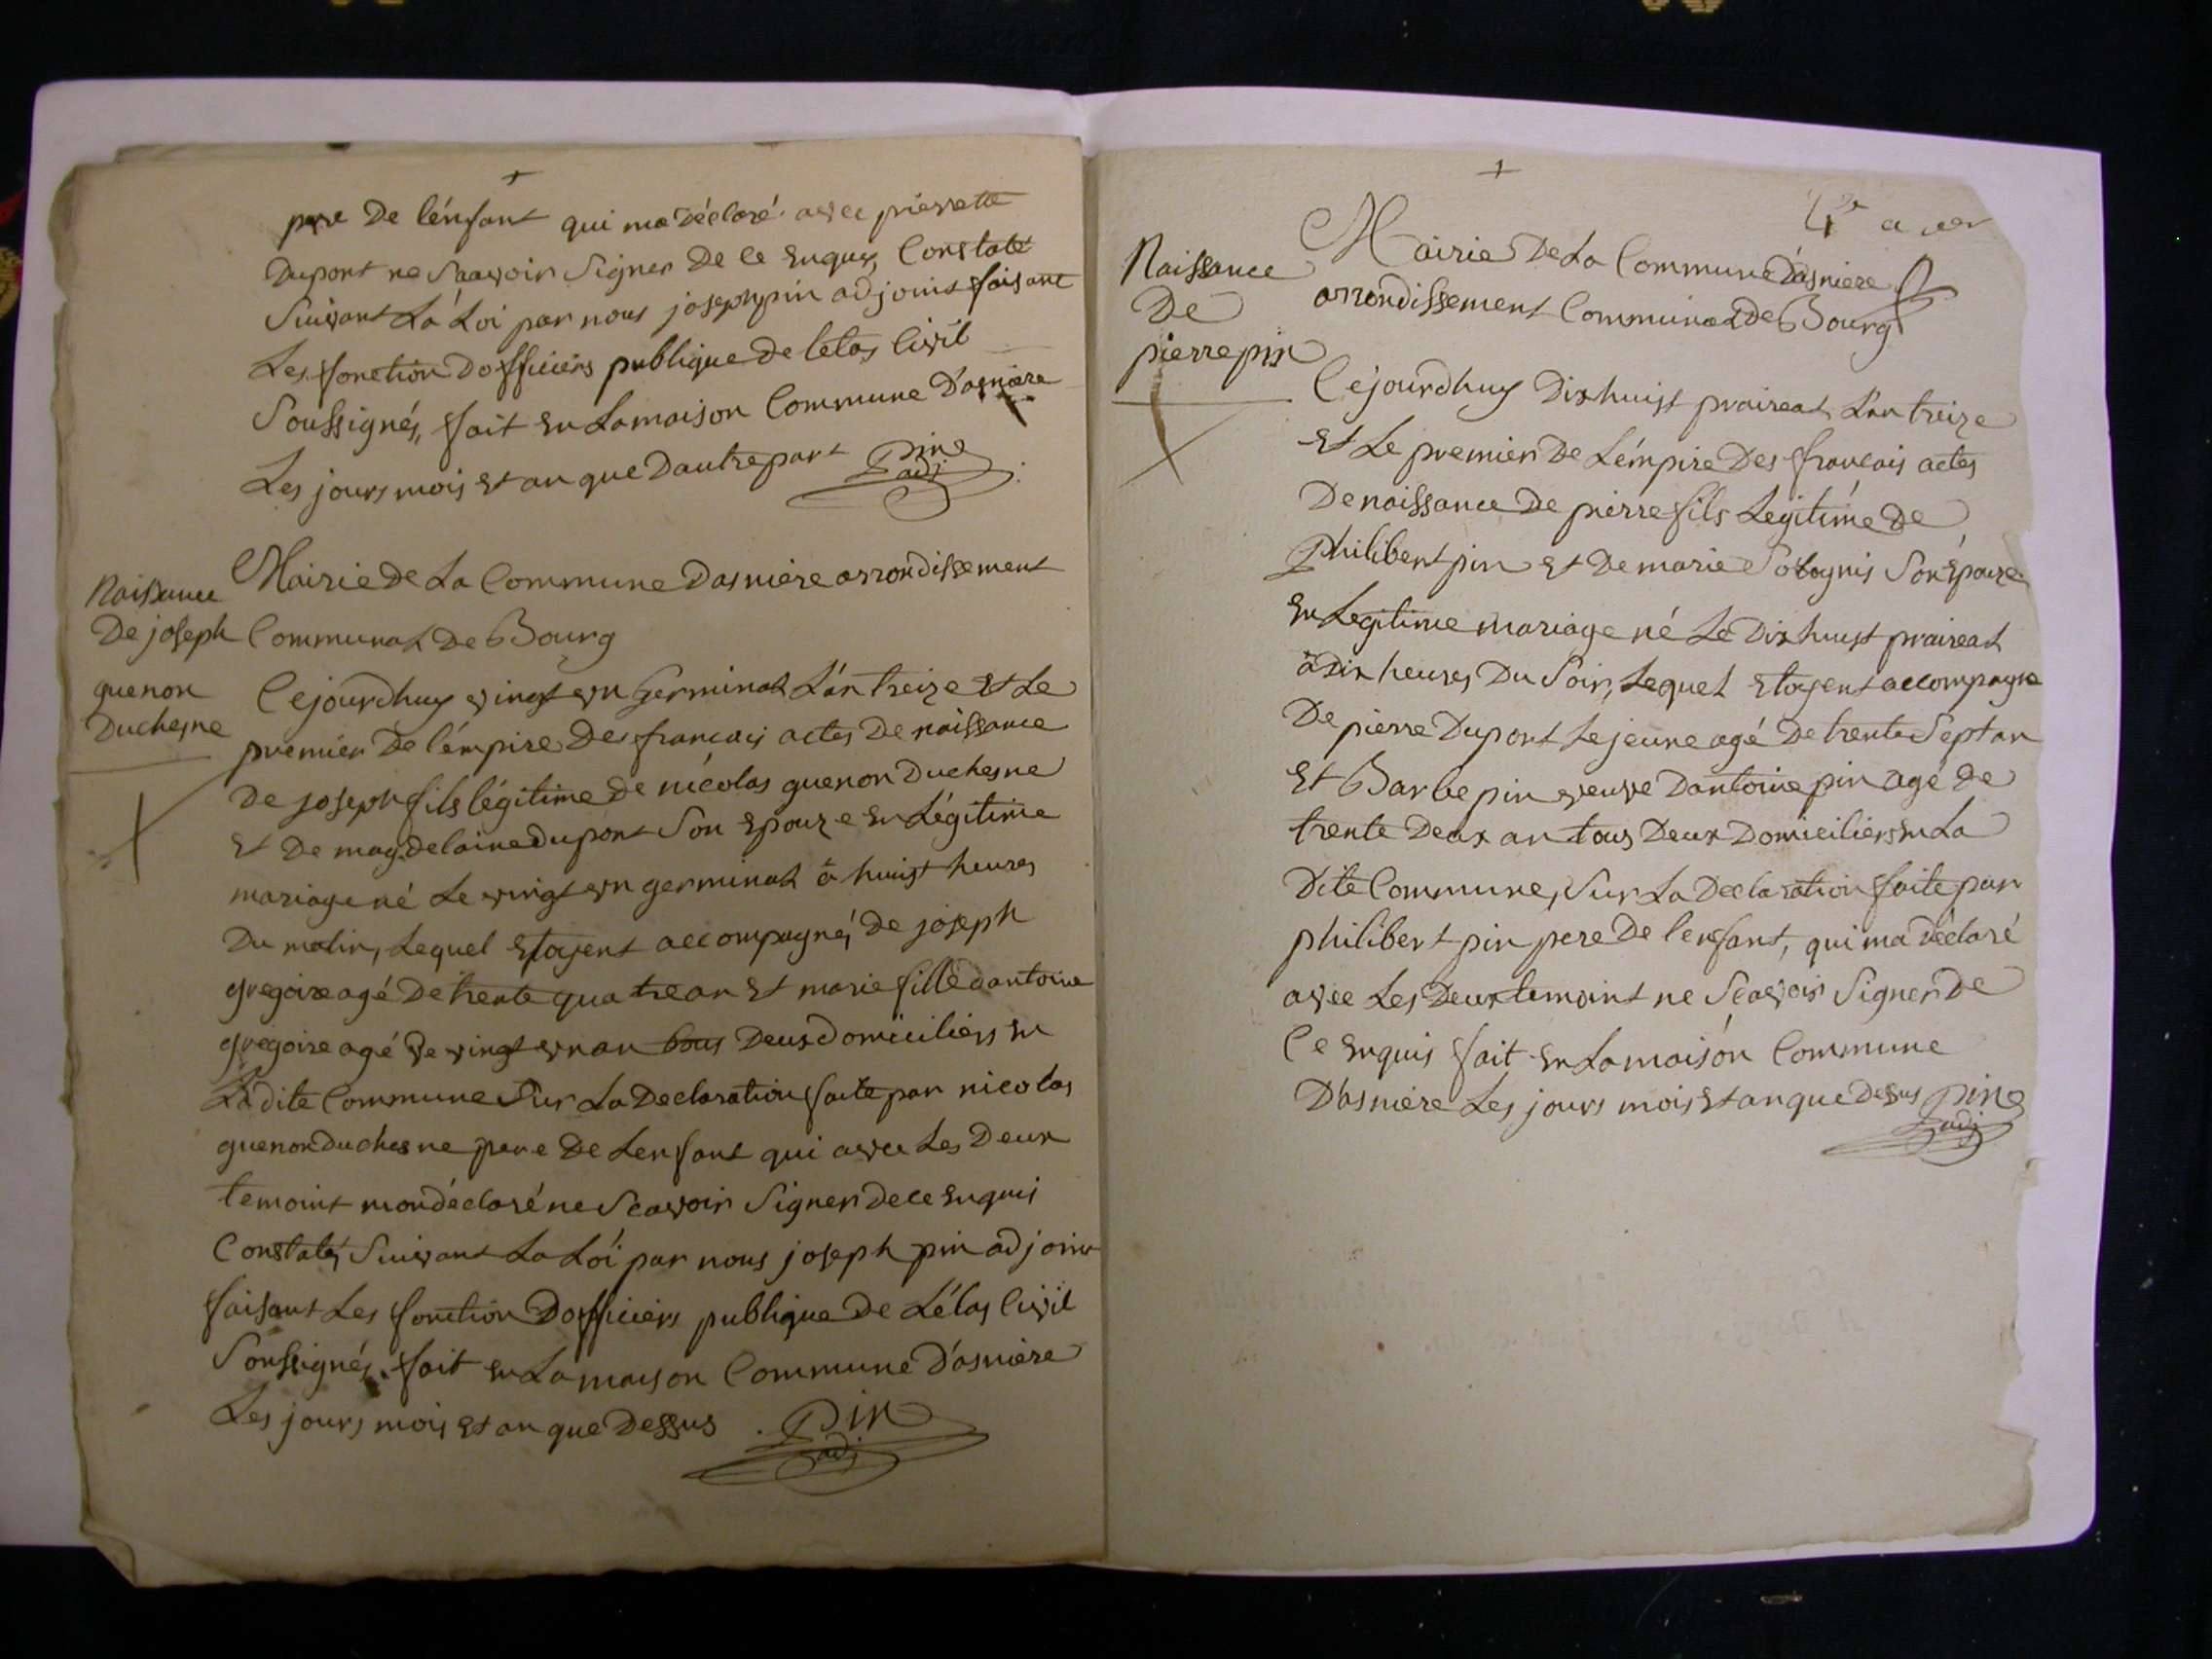 pere De lénfant qui ma déclaré avec pierrette
Dupont ne Scavoir Signer De ce Enquis, Constaté
Suivant La Loi par nous joseph pin adjoint faisant
Les fonction Dofficiers publique De letas Civil
Soussignés, fait En La maison Commune D'asniere
Les jours mois Et an que Dautre part Pin
adj
Naissance
De joseph
guenon
Duchesne
Mairie De La Commune Dasniere arrondissement
Communal De Bourg
Cejourdhuy vingt un Germinal L'an treize Et Le
premier De l'émpire Des francais actes De naissance
De joseph fils légitime De nicolas guenon Duchesne
Et De magdelaine Dupont Son Epouze En Légitime
mariage né Le vingt un germinal à huist heures
Du matin, Lequel Etayent accompagnés De joseph
gregoire agé De trente quatre an Et marie fille dantoine
gregoire agé De vingt un an tous Deux Domiciliers En
La dite Commune Sur La Declaration faite par nicolas
guenon duchesne pere De Lenfant qui avec Les Deux
temoint mon déclaré ne Scavoir Signer De ce Enquis
Constatés Suivant La Loi par nous joseph pin adjoint
faisant Les fonction Dofficiers publique De Létas Civil
Soussignés. fait En La maison Commune D'asniere
Les jours mois Et an que Dessus Pin
adj
Naissance
De
pierre pin
Mairie De La Commune D'asniere
arrondissement Communal De Bourg
Cejourdhuy Dixhuist praireal L'an treize
Et Le premier De L'émpire Des francais actes
De naissance De pierre fils Legitime De
Philibert pin Et De marie Son Epouze
En Legitime mariage né Le Dix huist praireal
à Dix heures Du Soir, Lequel Etayent accompagne
De pierre Dupont Lejeune agé De trente Sept an
Et Barbe pin veuve Dantoine pin agé De
trente Deux an tous Deux Domiciliers En La
Dite Commune, Sur La Declaration faite par
philibert pin pere De lenfant, qui ma déclaré
avec Les Deux temoint ne Scavoir Signer De
Ce Enquis fait En La maison Commune
D'asniere Les jours mois Et an que Dessus Pin
adj